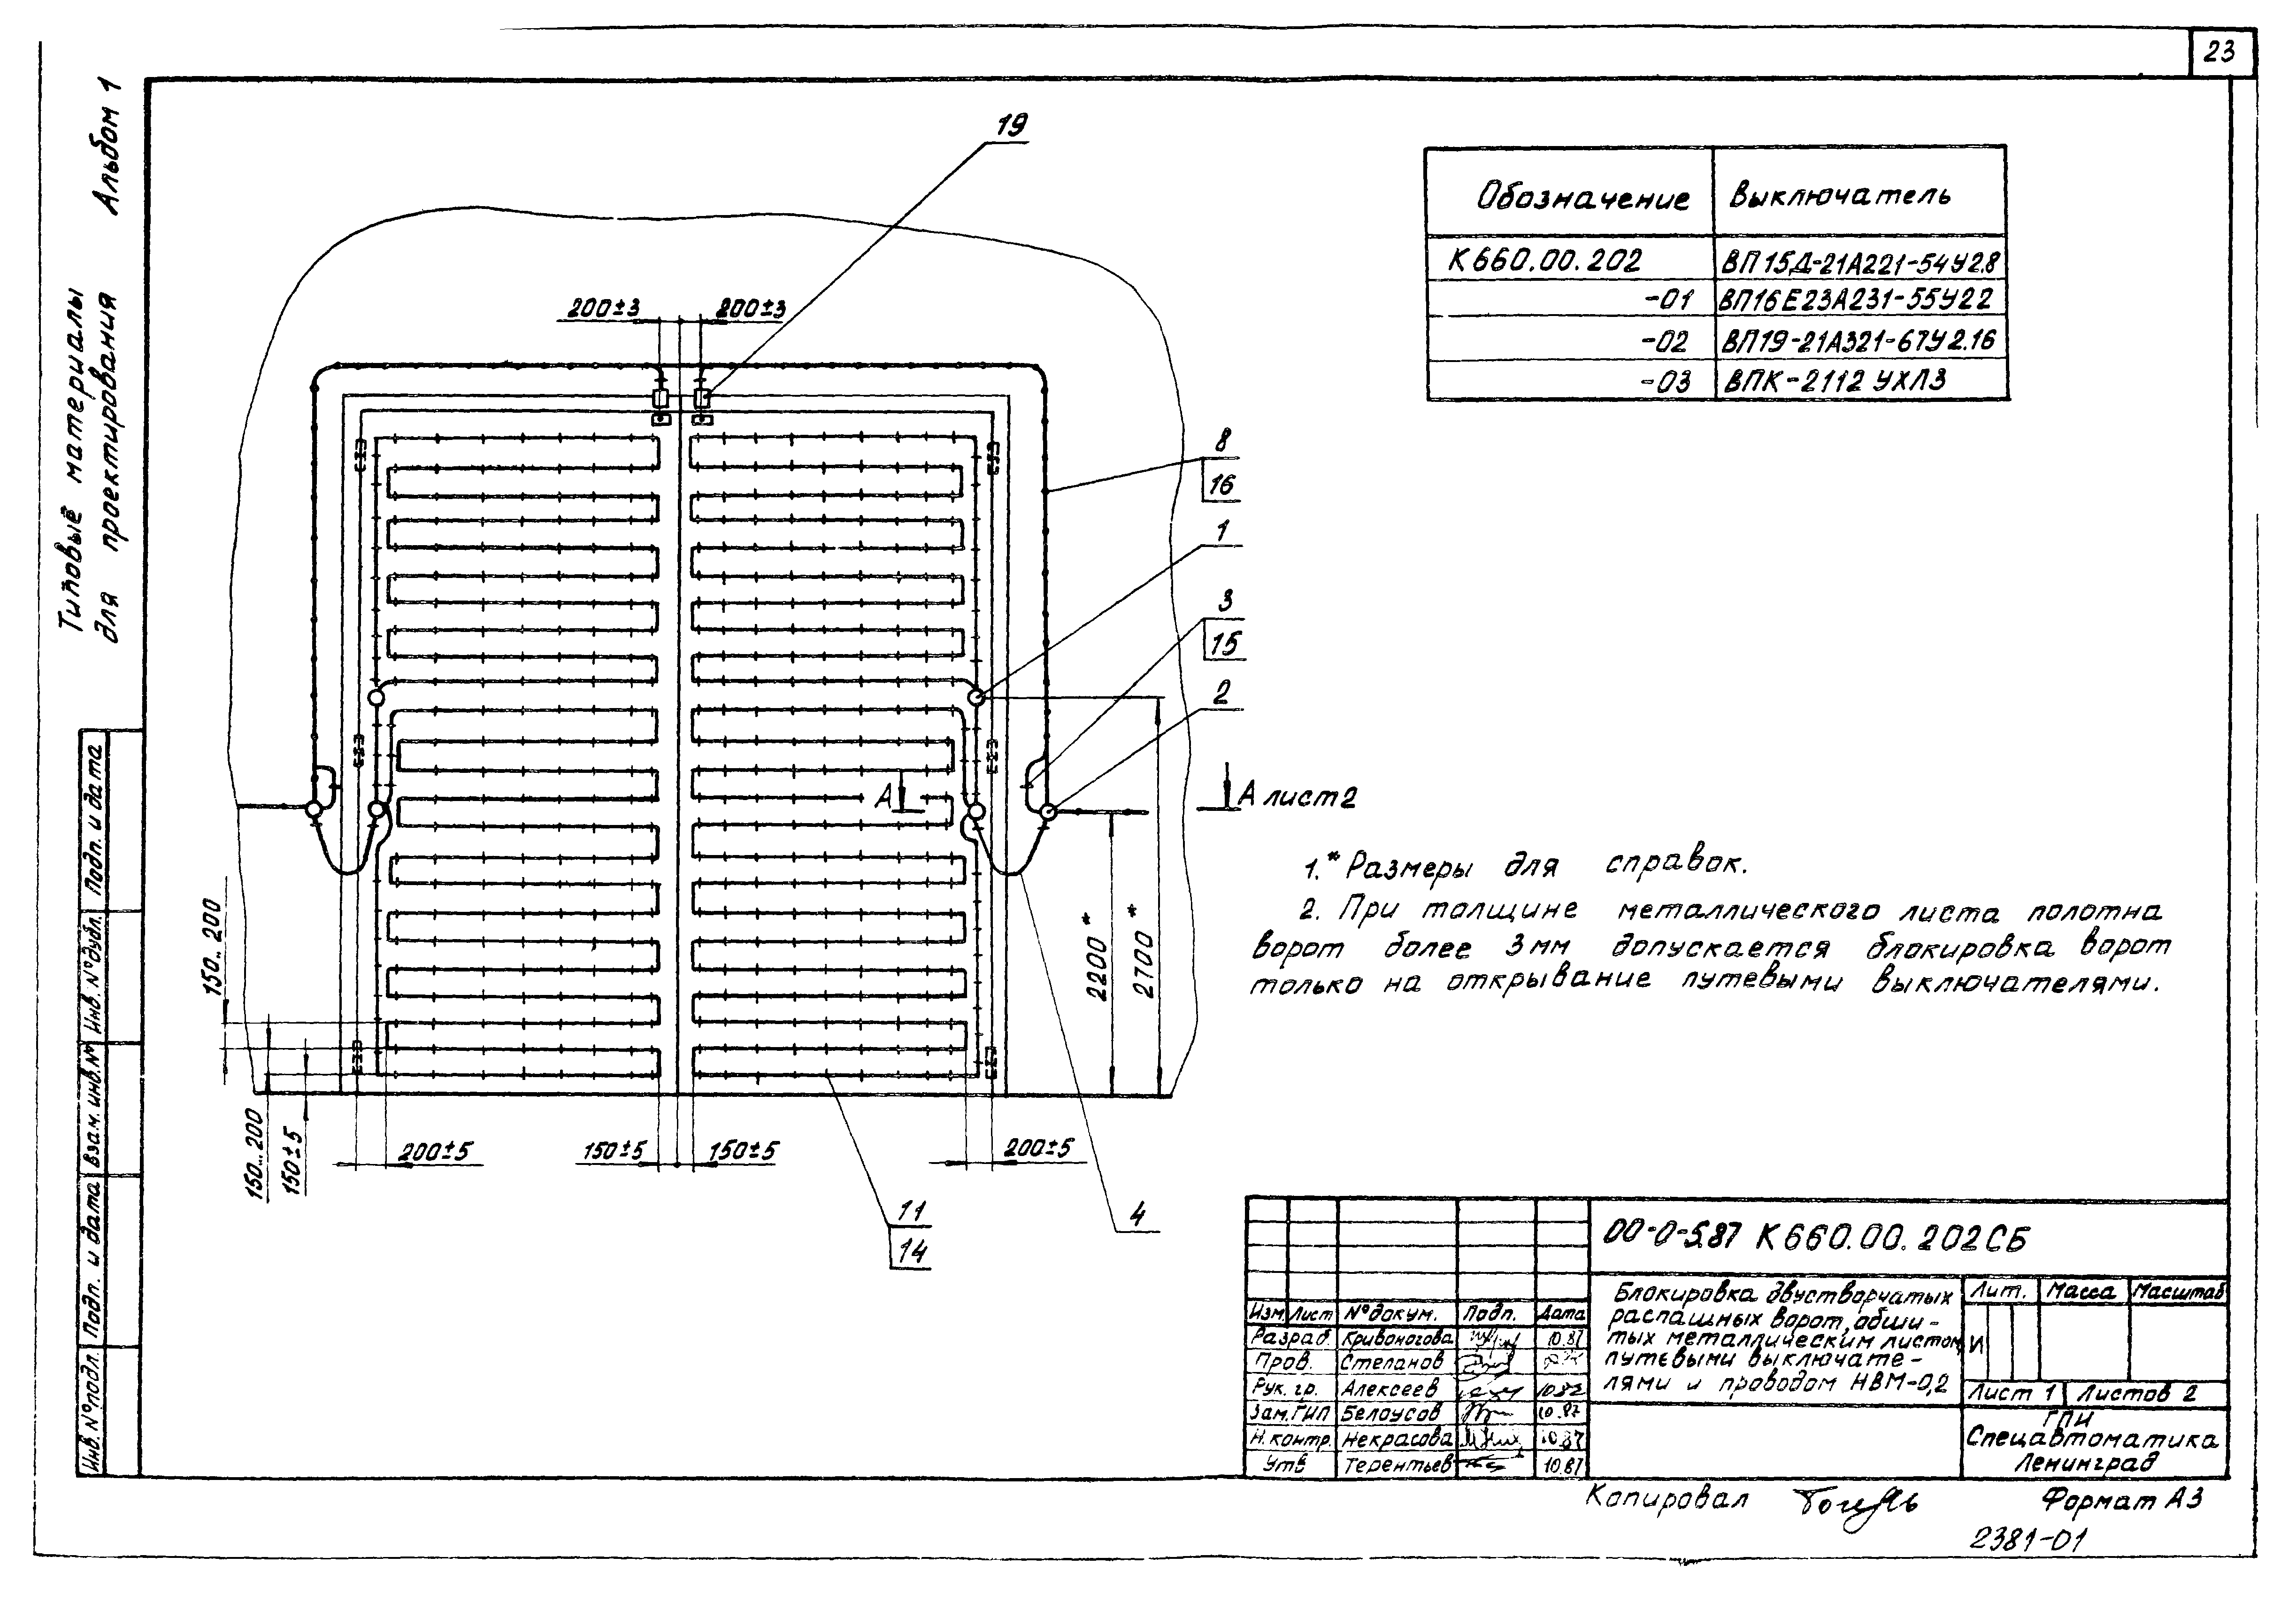 23
Альбом 1
Типовые материалы
для проектирования
19
200±3
200±3
Обозначение Выключатель
К660.00.202 ВП15Д-21А221-54У2.8
-01 ВП16Е23А231-55У22
-02 ВП19-21А321-67У2.16
-03 ВПК-2112 УХЛ3
8
16
1
3
15
2
А
А лист 2
1.* Размеры для справок.
2. При толщине металлического листа полотна
ворот более 3 мм допускается блокировка ворот
только на открывание путевыми выключателями.
2200*
2700*
150..200
150..200
150±5
200±5
150±5
150±5
200±5
11
14
4
Подп. и дата
Инв. № дубл.
Взам. инв. №
Подп. и дата
Инв. № подл.
00-0-5.87 К660.00.202СБ
Изм. Лист № докум. Подп. Дата
Разраб. Кривоногова 10.87
Пров. Степанов
Рук. гр. Алексеев
Зам. ГИП Белоусов 10.87
Н. контр. Некрасова 10.87
Утв Терентьев 10.87
Блокировка двустворчатых
распашных ворот, обши-
тых металлическим листом,
путевыми выключате-
лями и проводом НВМ-0,2
Лит. Масса Масштаб
И
Лист 1 Листов 2
ГПИ
Спецавтоматика
Ленинград
Копировал
Формат А3
2381-01